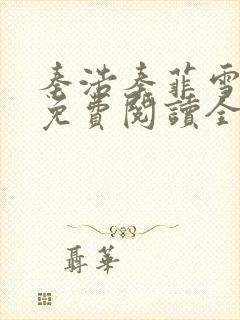 秦浩秦菲雪
免費閱讀全
聶華